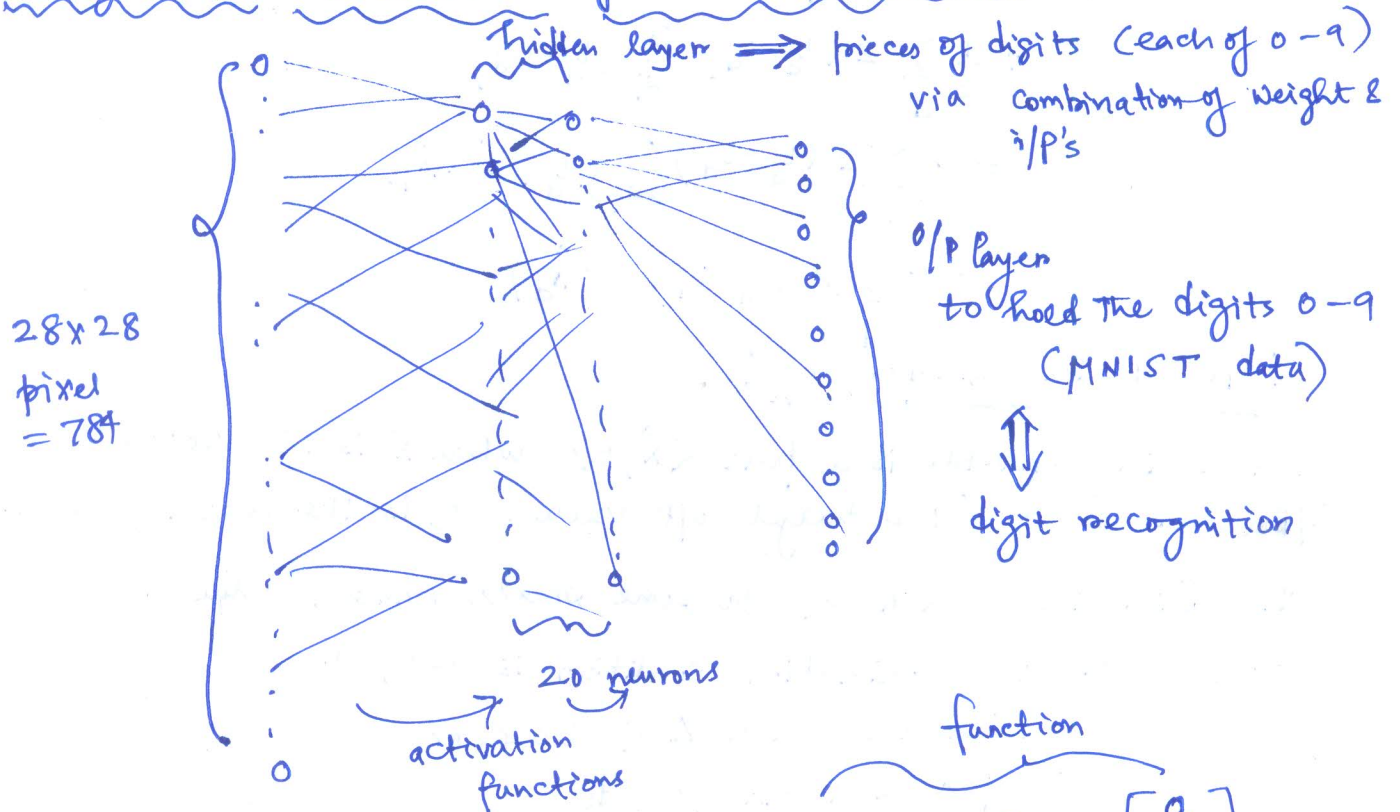 hidden layer ⟹ pieces of digits (each of 0-9)
via combination of weight &
i/P's
28x28
pixel
= 784
O/P layer
to hold the digits 0-9
(MNIST data)
⇕
digit recognition
20 neurons
activation
functions
function